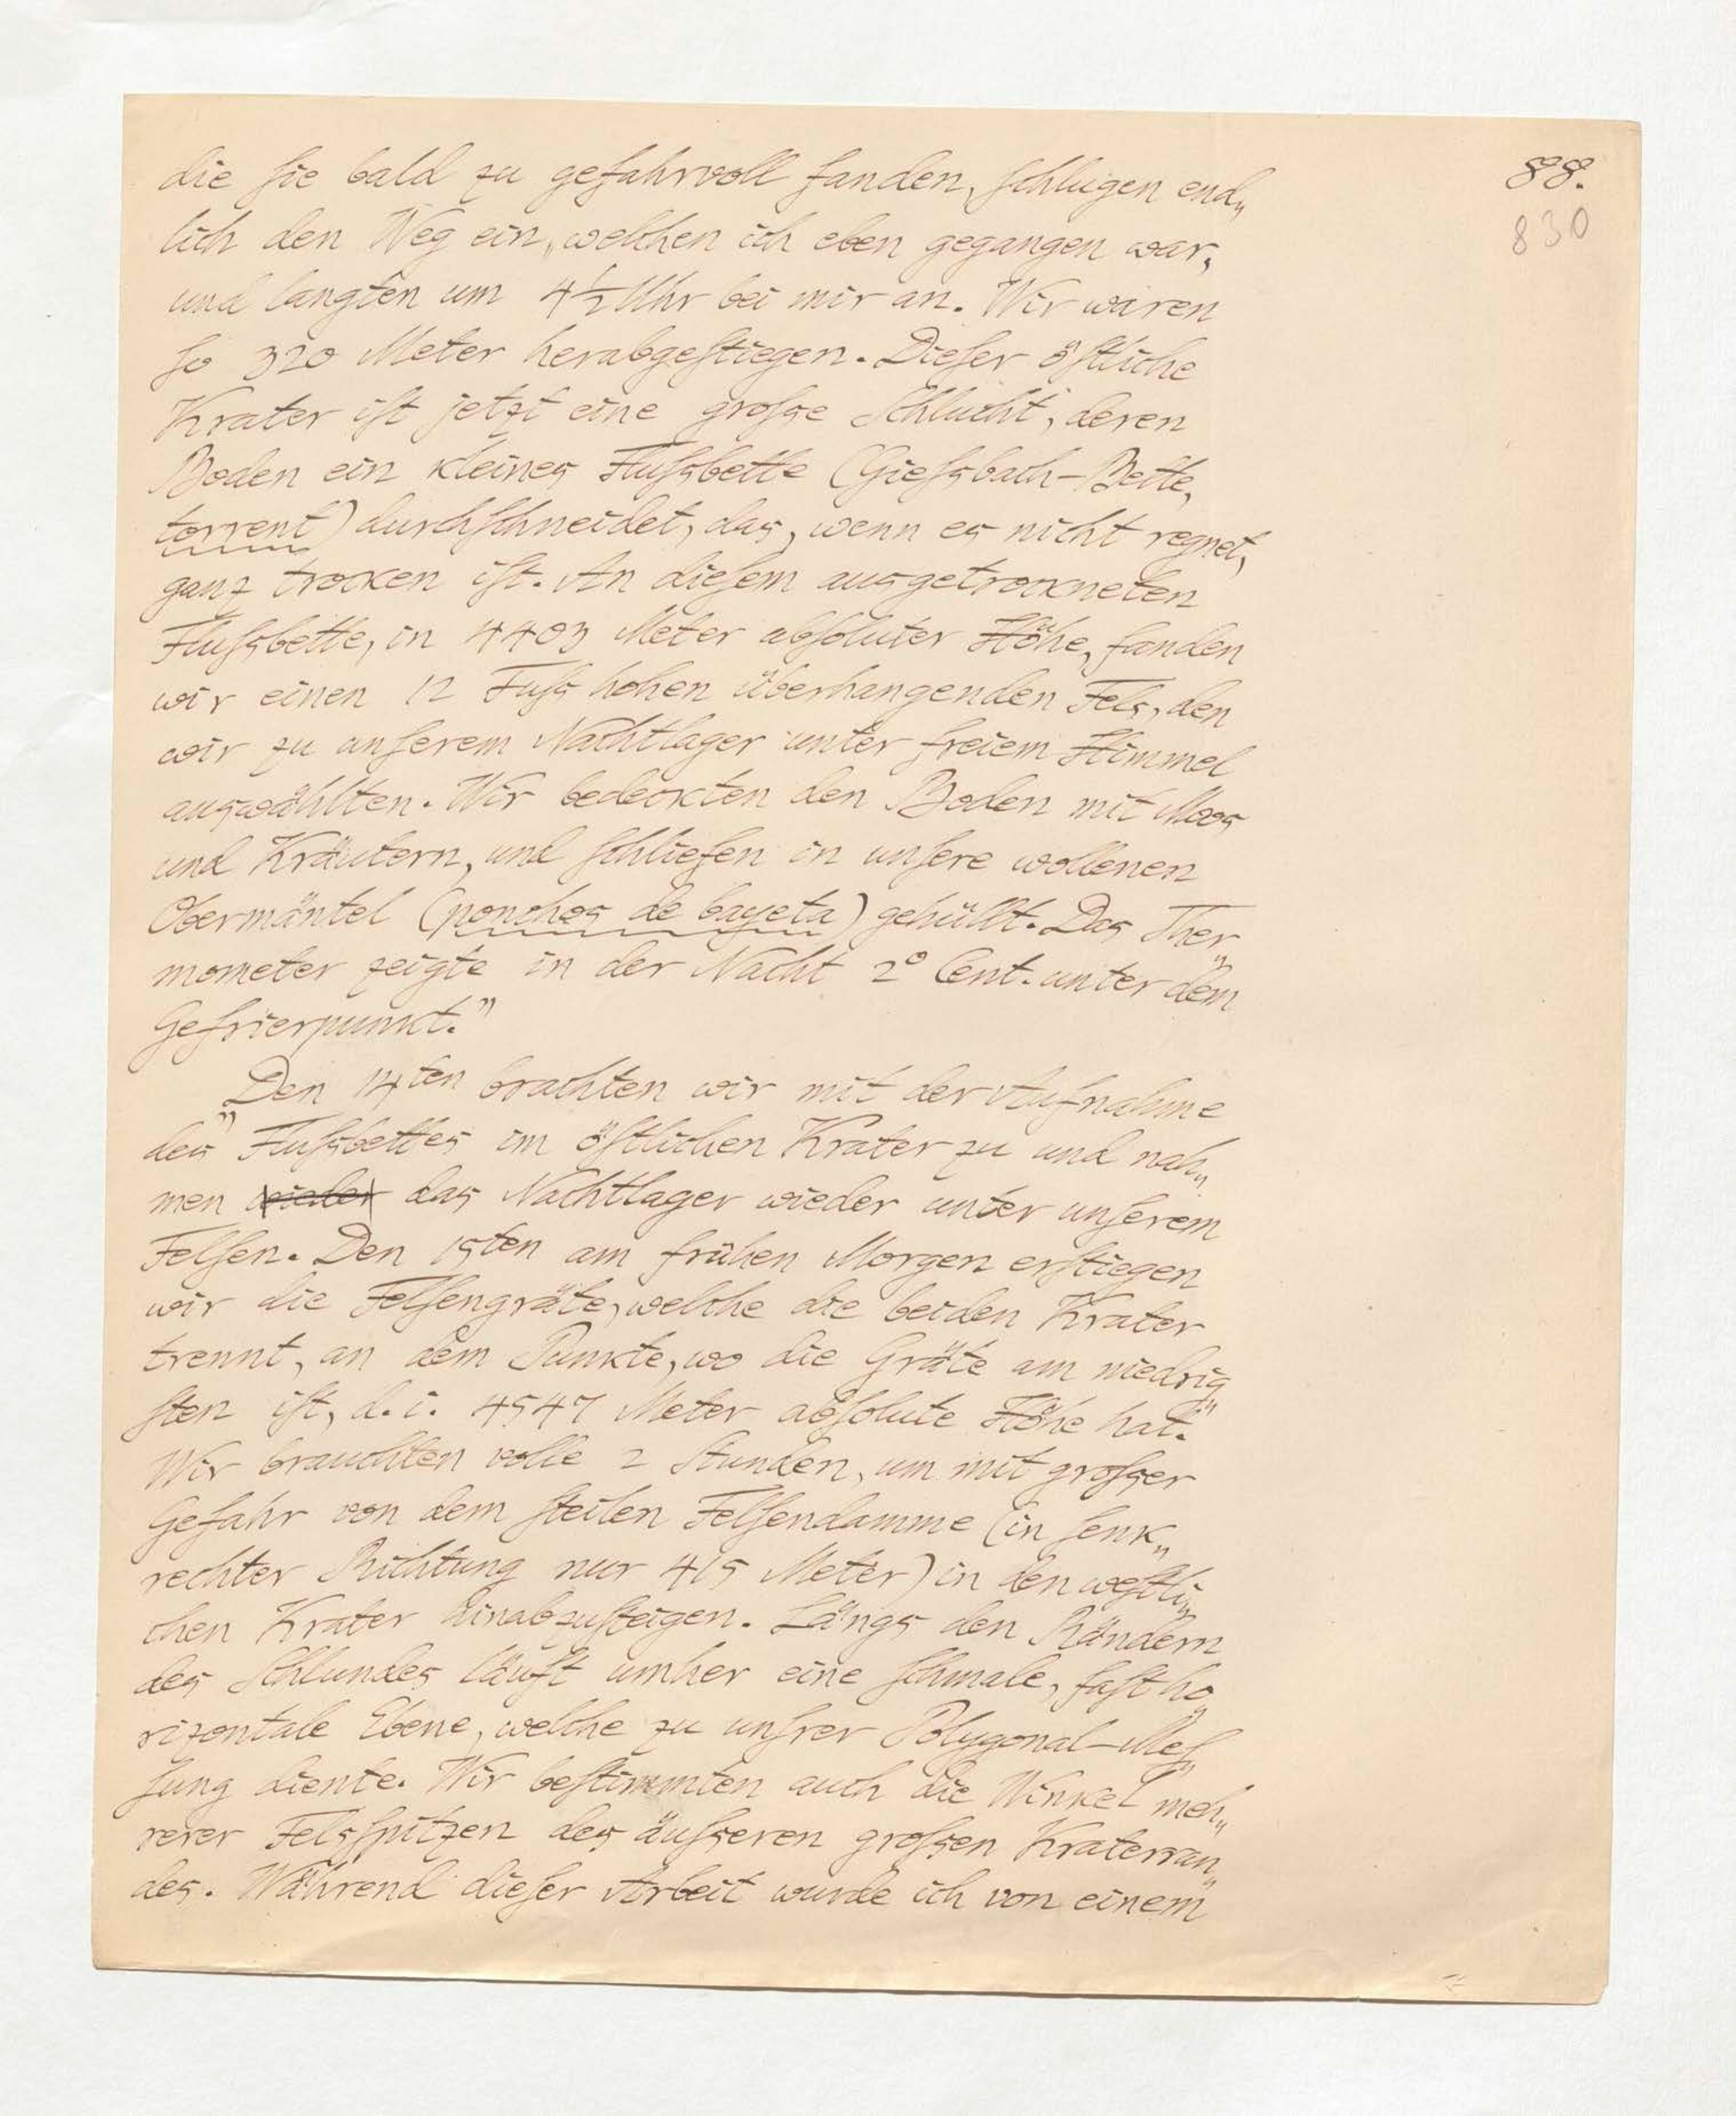 88.
830
die ſie bald zu gefahrvoll fanden, ſchlugen end„
lich den Weg ein, welchen ich eben gegangen war,
und langten um 4½ Uhr bei mir an. Wir waren
ſo 320 Meter herabgeſtiegen. Dieſer öſtliche
Krater iſt jetzt eine groſse Schlucht, deren
Boden ein kleines Fluſsbette (Gieſsbach-Bette,
torrent) durchſchneidet, das, wenn es nicht regnet,
ganz trocken iſt. An dieſem ausgetrockneten
Fluſsbette, in 4403 Meter abſoluter Höhe, fanden
wir einen 12 Fuſs hohen überhangenden Fels, den
wir zu unſerem Nachtlager unter freiem Himmel
auswählten. Wir bedeckten den Boden mit Moos
und Kräutern, und ſchliefen in unſere wollenen
Obermäntel (ponchos de bayeta) gehüllt. Das Ther„
mometer zeigte in der Nacht 2° Cent. unter dem
Gefrierpunkt.”
„Den 14ten brachten wir mit der Aufnahme
des Fluſsbettes im öſtlichen Krater zu und nah„
men wieder das Nachtlager wieder unter unſerem
Felſen. Den 15ten am frühen Morgen erſtiegen
wir die Felſengräte, welche die beiden Krater
trennt, an dem Punkte, wo die Gräte am niedrig„
ſten iſt, d. i. 4547 Meter abſolute Höhe hat.
Wir brauchten volle 2 Stunden, um mit groſser
Gefahr von dem ſteilen Felſendamme (in ſenk„
rechter Richtung nur 415 Meter) in den weſtli„
chen Krater hinabzuſteigen. Längs den Rändern
des Schlundes läuft umher eine ſchmale, faſt ho„
rizontale Ebene, welche zu unſrer Polygonal-Meſ„
ſung diente. Wir beſtimmten auch die Winkel meh„
rerer Felsſpitzen des äuſseren groſsen Kraterran„
des. Während dieſer Arbeit wurde ich von einem